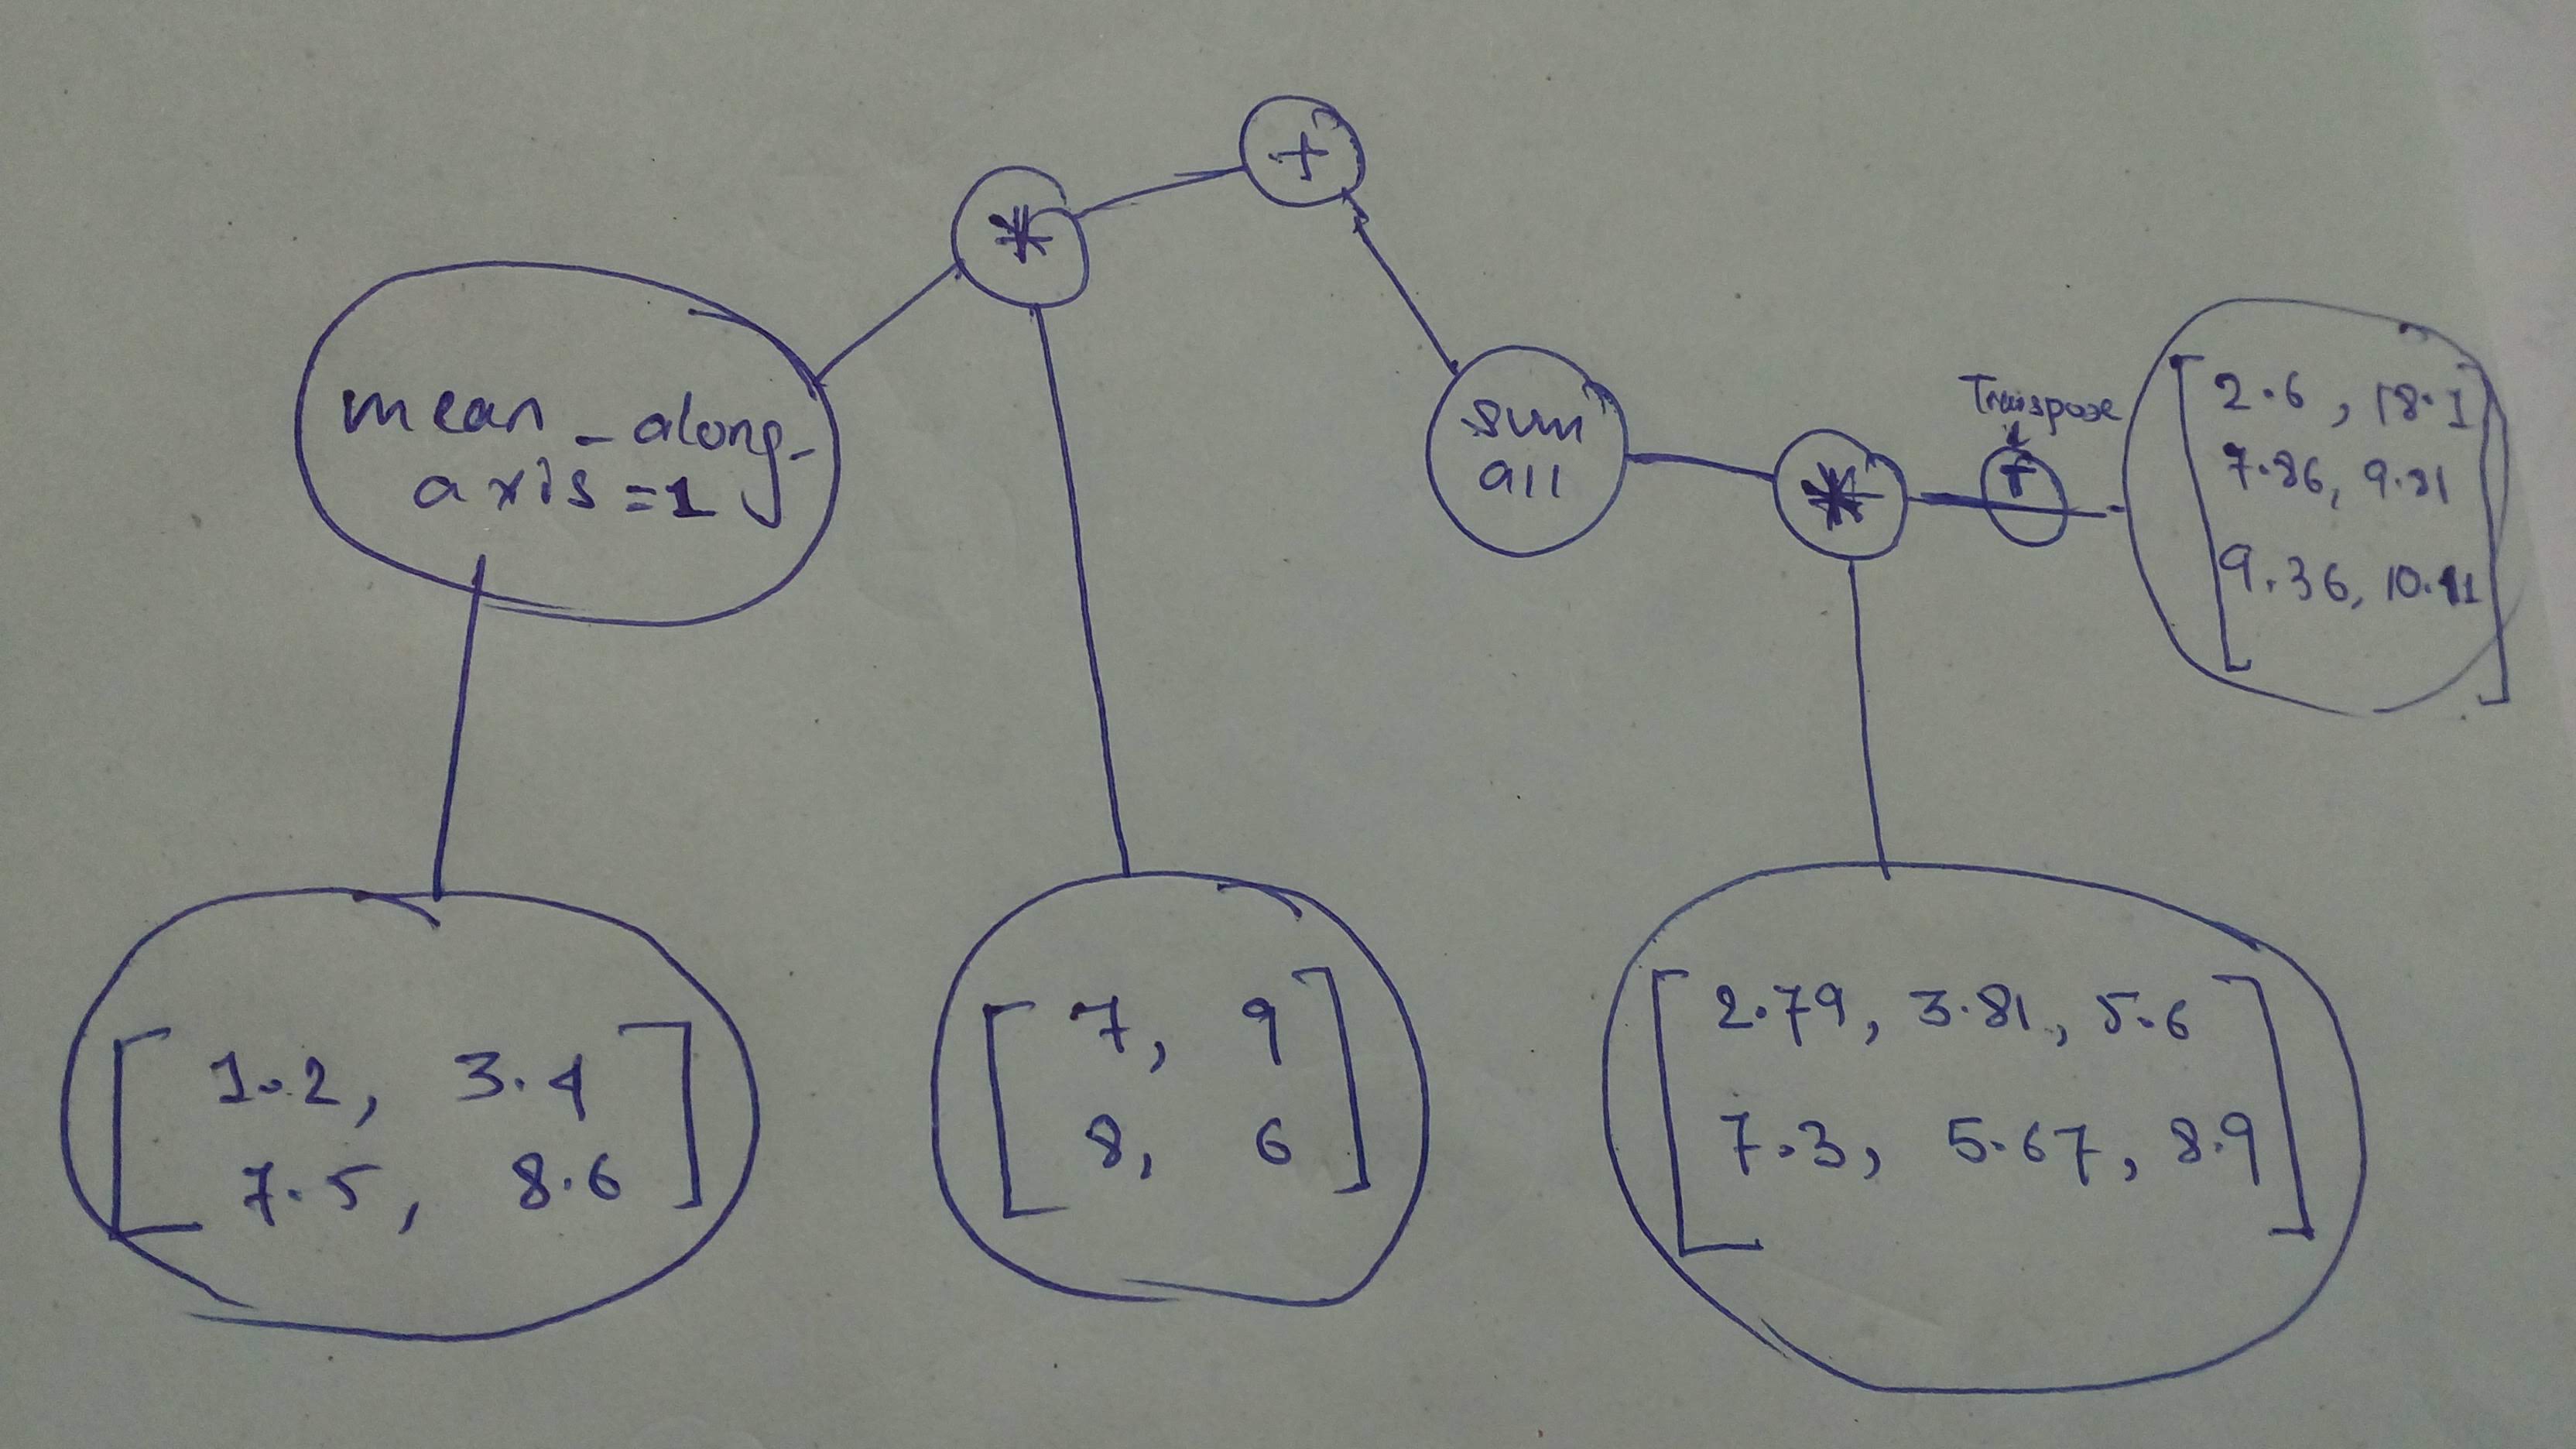 +
*
mean_along_
axis=1
sum
all
*
Transpose
T
[2.6, 18.1
7.86, 9.81
9.36, 10.11]
[1.2, 3.4
7.5, 8.6]
[7, 9
8, 6]
[2.79, 3.81, 5.6
7.3, 5.67, 8.9]